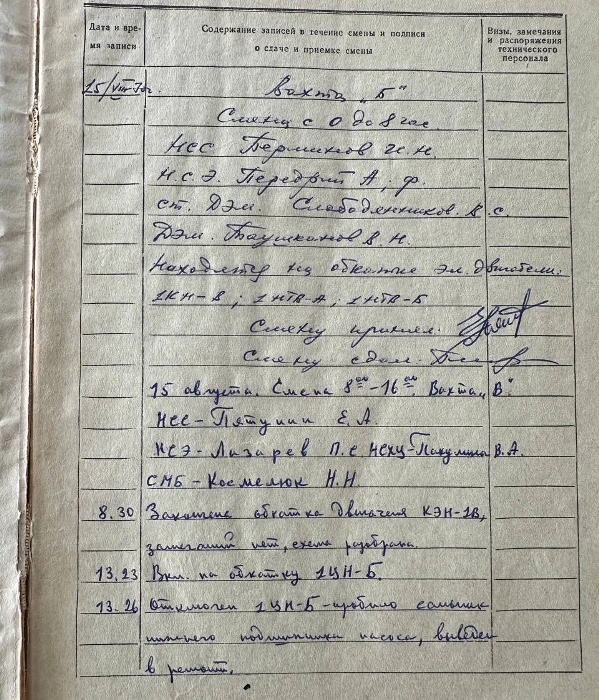 Дата и вре-
мя записи
Содержание записей в течение смены и подписи
о сдаче и приемке смены
Визы, замечания
и распоряжения
технического
персонала
15/VIII-
Вахта „Б"
Смена с 0 до 8 час.
НСС Перминов И.Н.
НСЭ. Передрий А. ф.
ст. ДЭМ. Слободянников. В. с.
ДЭМ. Таушканов В. Н.
Находятся на обкатке эл. двигатели:
1КН-В; 1НТВ-А; 1НТВ-Б
Смену принял:
Смену сдал:
15 августа. Смена 8⁰⁰-16⁰⁰. Вахта „В".
НСС-Пятунин Е.А.
НСЭ-Лазарев П.С НСХЦ-Пакулина В.А.
СМБ-Космелюк Н.Н
8.30 Закончена обкатка двигателя КЭН-1В,
замечаний нет, схема разобрана.
13.23 Вкл. на обкатку 1ЦН-Б.
13.26 Отключен 1ЦН-Б-пробило сальник
нижнего подшипника насоса, выведен
в ремонт.